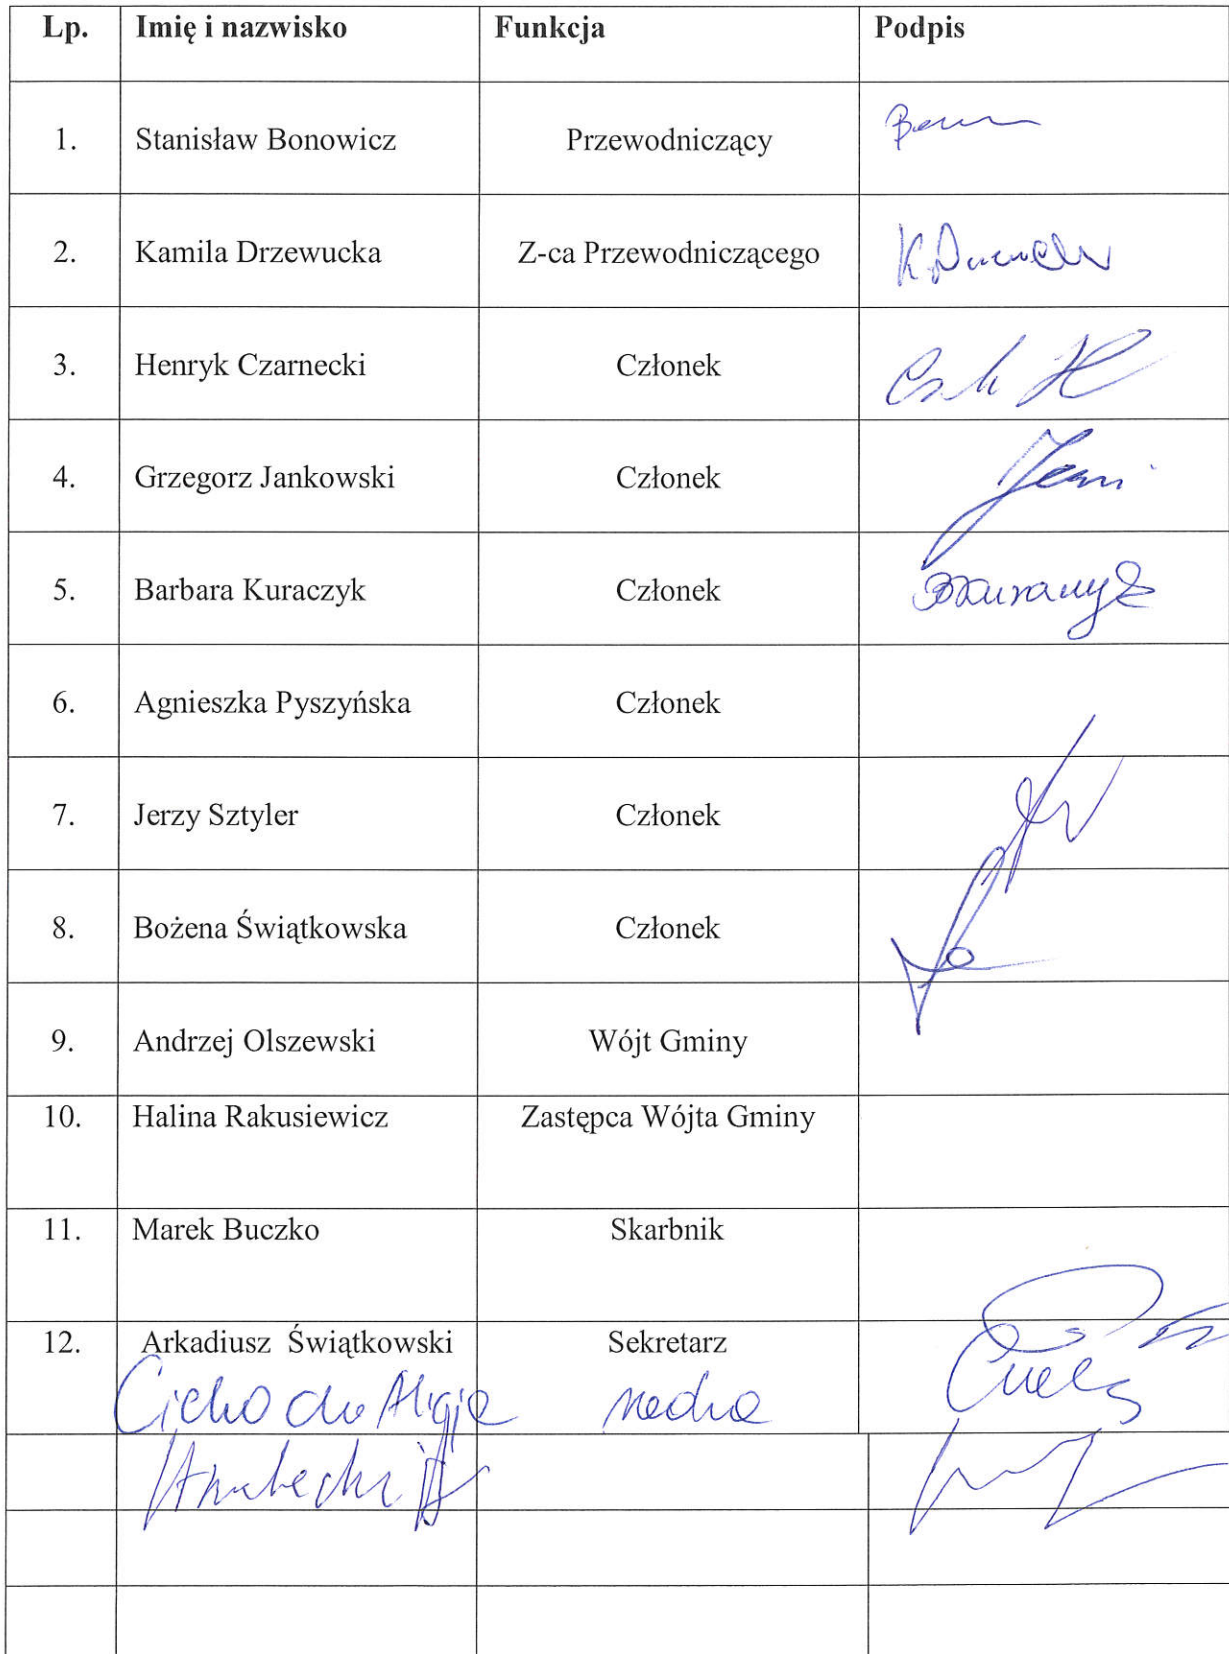 Lp. Imię i nazwisko Funkcja Podpis
1. Stanisław Bonowicz Przewodniczący
2. Kamila Drzewucka Z-ca Przewodniczącego
3. Henryk Czarnecki Członek
4. Grzegorz Jankowski Członek
5. Barbara Kuraczyk Członek
6. Agnieszka Pyszyńska Członek
7. Jerzy Sztyler Członek
8. Bożena Świątkowska Członek
9. Andrzej Olszewski Wójt Gminy
10. Halina Rakusiewicz Zastępca Wójta Gminy
11. Marek Buczko Skarbnik
12. Arkadiusz Świątkowski Sekretarz